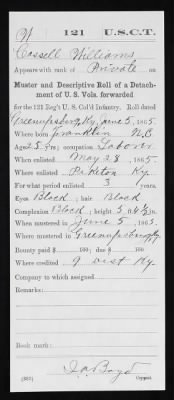 W 121 U.S.C.T.
Cassell Williams
Appears with rank of Private on
Muster and Descriptive Roll of a Detach-
ment of U. S. Vols. forwarded
for the 121 Reg't U. S. Col'd Infantry. Roll dated
Greenupsburg, Ky, June 5, 1865.
Where born Franklin
Age 25 y'rs; occupation Laborer
When enlisted May 28, 1865.
Where enlisted Ky.
For what period enlisted 3 years.
Eyes Black; hair Black
Complexion Black; height 5 ft. 4½ in.
When mustered in June 5, 1865.
Where mustered in Greenupsburg, Ky.
Bounty paid $ 100; due $ 100
Where credited 9 Dist Ky.
Company to which assigned
Remarks:
Book mark:
J. A. Boyd
Copyist.